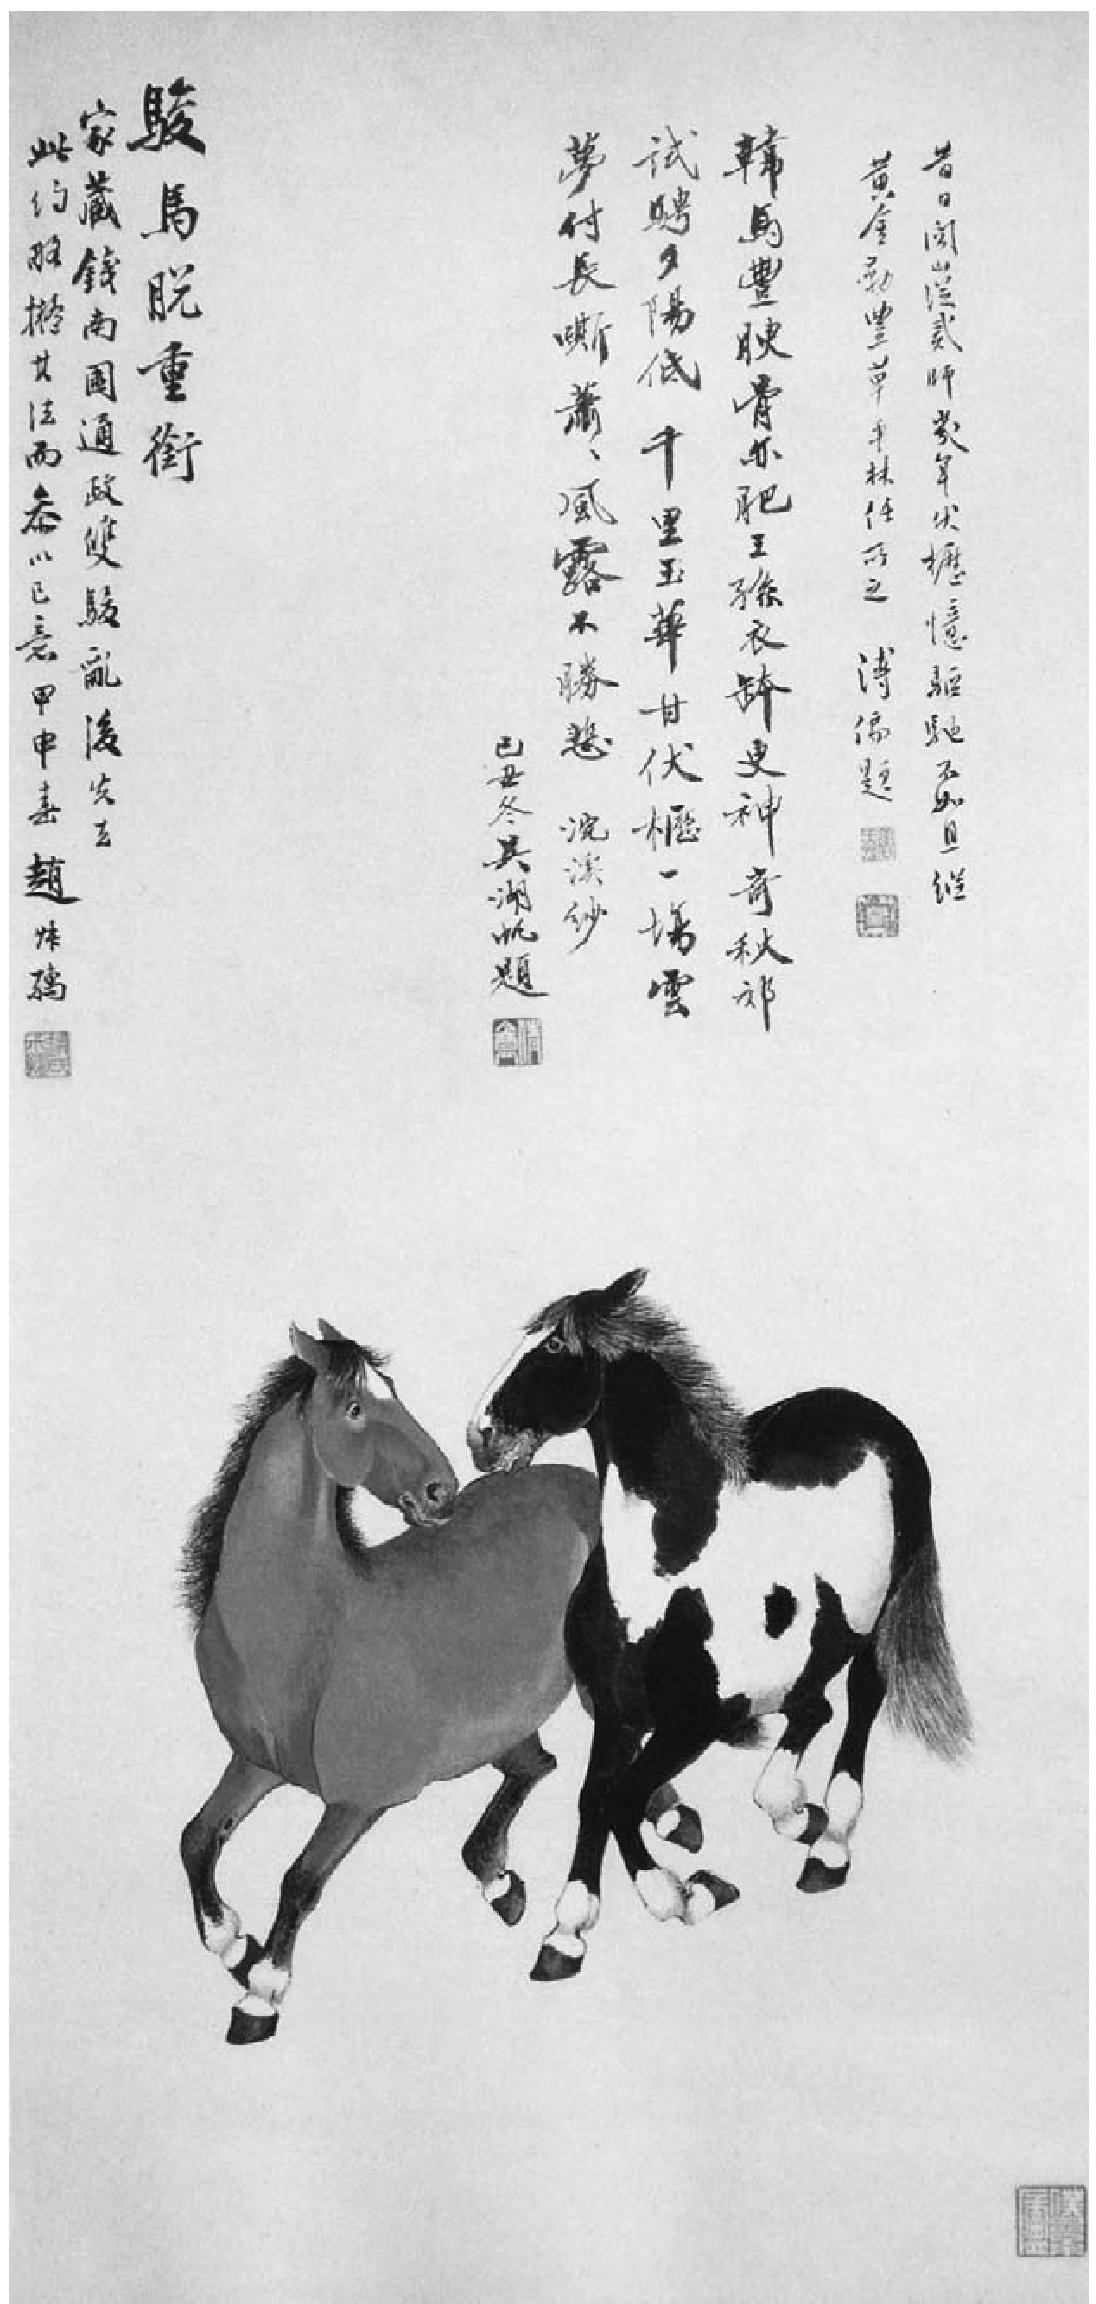 昔日關山從貳師幾年伏櫪憶驅馳不如且縱
黃金勒豐草平林任所之　溥儒題
韓馬豐腴骨亦肥王孫衣缽更神奇秋郊
試騁夕陽低　千里玉華甘伏櫪一場雲
夢付長嘶蕭〻風露不勝悲　浣溪紗
己丑冬吳湖帆題
駿馬脫重銜
家藏錢南園通政雙駿亂後失去
此約略撫其法而參以己意甲申春　趙叔孺